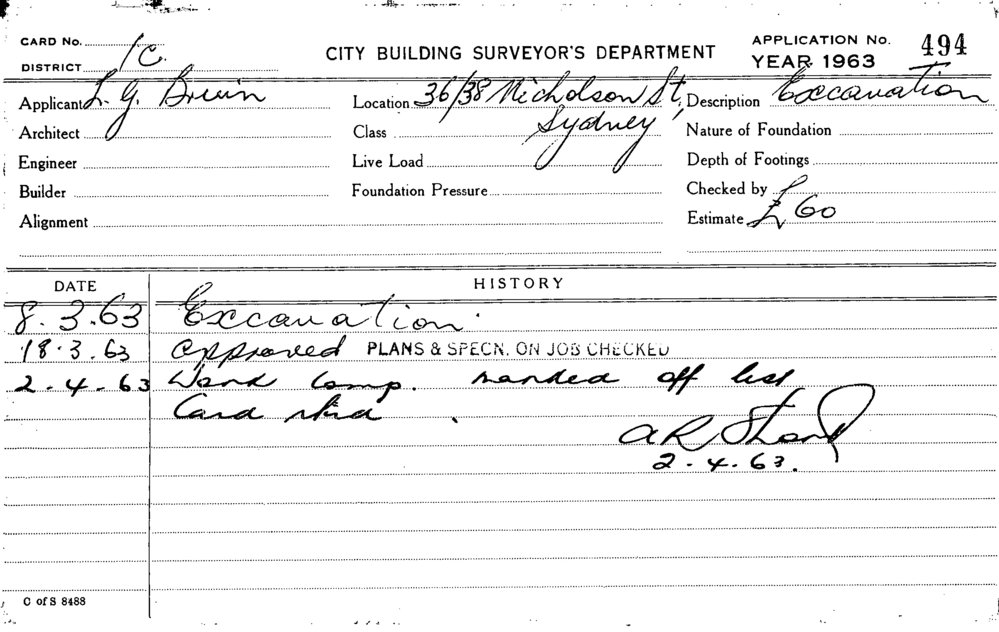 CARD No.
DISTRICT 1C.
CITY BUILDING SURVEYOR'S DEPARTMENT
APPLICATION No. 494
YEAR 1963
Applicant L. G. Bruin
Location 36/38 Nicholson St, Sydney
Description Excavation
Architect
Class
Nature of Foundation
Engineer
Live Load
Depth of Footings
Builder
Foundation Pressure
Checked by
Alignment
Estimate £60
DATE HISTORY
8.3.63 Excavation.
18.3.63 Approved PLANS & SPECN. ON JOB CHECKED
2-4-63 Work comp. marked off list
Card
A R
2-4-63.
C of S 8488